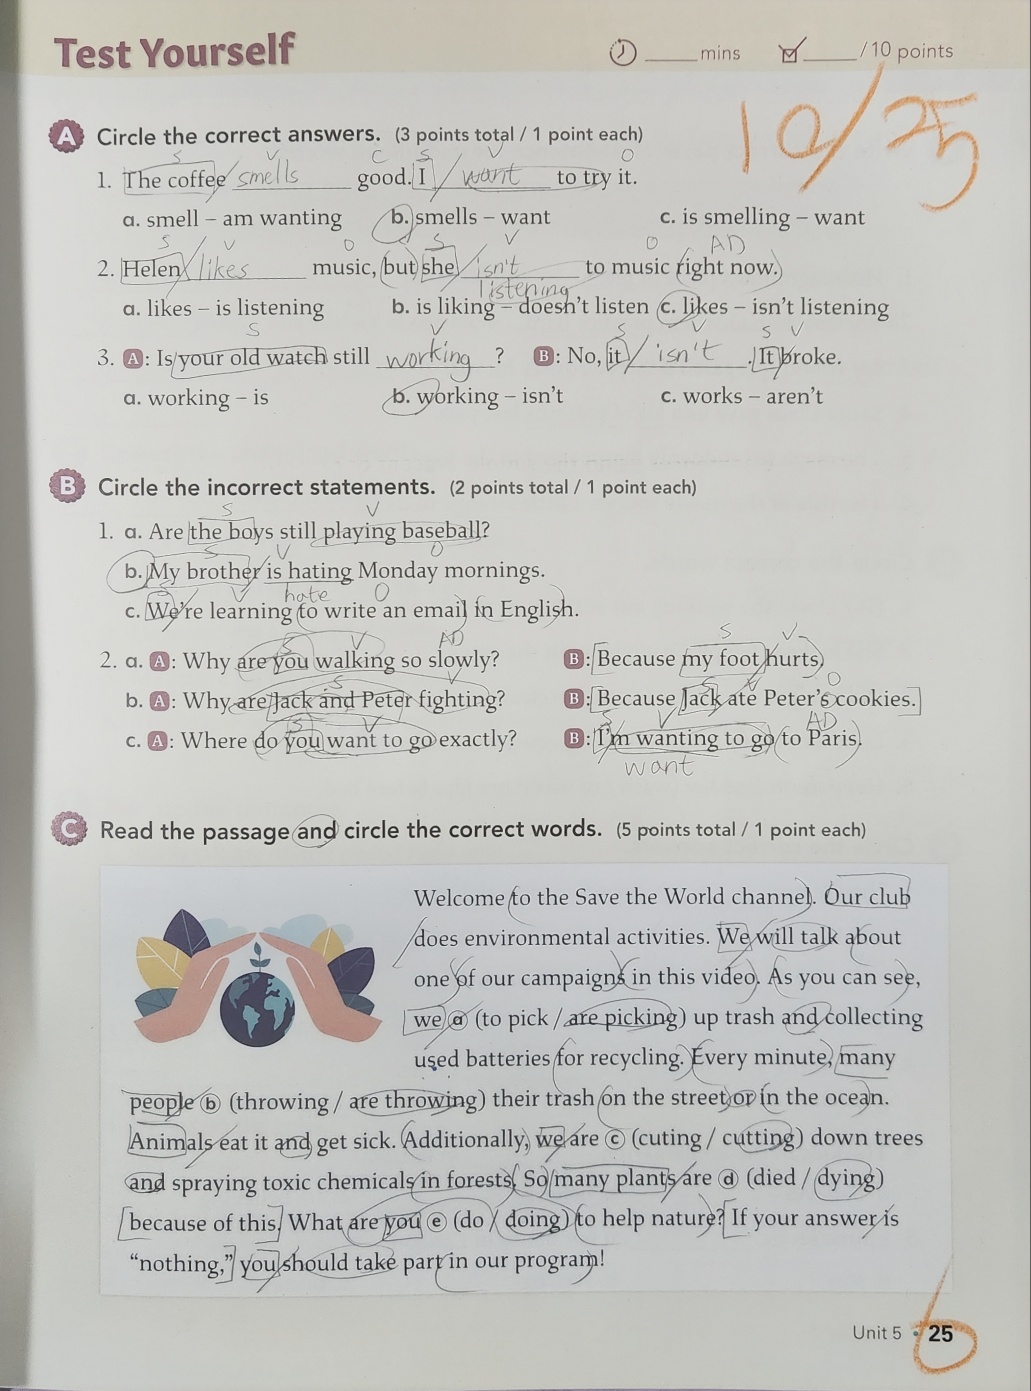 Test Yourself
____ mins ____ /10 points
10/25
A Circle the correct answers. (3 points total / 1 point each)
S V C S V O
1. The coffee smells good. I want to try it.
a. smell – am wanting b. smells – want c. is smelling – want
S V O S V O AD
2. Helen likes music, but she isn't to music right now.
listening
a. likes – is listening b. is liking – doesn't listen c. likes – isn't listening
S V S V S V
3. A: Is your old watch still working? B: No, it isn't. It broke.
a. working – is b. working – isn't c. works – aren't
B Circle the incorrect statements. (2 points total / 1 point each)
S V
1. a. Are the boys still playing baseball?
S V O
b. My brother is hating Monday mornings.
hate
S V O
c. We're learning to write an email in English.
S V AD S V
2. a. A: Why are you walking so slowly? B: Because my foot hurts.
S V S V O
b. A: Why are Jack and Peter fighting? B: Because Jack ate Peter's cookies.
S V S V AD
c. A: Where do you want to go exactly? B: I'm wanting to go to Paris.
want
C Read the passage and circle the correct words. (5 points total / 1 point each)
Welcome to the Save the World channel. Our club
does environmental activities. We will talk about
one of our campaigns in this video. As you can see,
we ⓐ (to pick / are picking) up trash and collecting
used batteries for recycling. Every minute, many
people ⓑ (throwing / are throwing) their trash on the street or in the ocean.
Animals eat it and get sick. Additionally, we are ⓒ (cuting / cutting) down trees
and spraying toxic chemicals in forests. So many plants are ⓓ (died / dying)
because of this. What are you ⓔ (do / doing) to help nature? If your answer is
“nothing,” you should take part in our program!
Unit 5 • 25